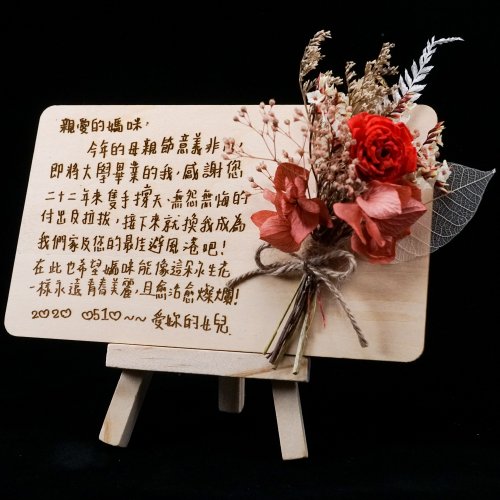 親愛的媽咪,
今年的母親節意義非凡,
即將大學畢業的我,感謝您
二十二年來隻手撐天、無怨無悔的
付出及拉拔,接下來就換我成為
我們家及您的最佳避風港吧!
在此也希望媽咪能像這朵永生花
一樣永遠青春美麗,且愈活愈燦爛!
2020 ♡51♡~~ 愛妳的女兒